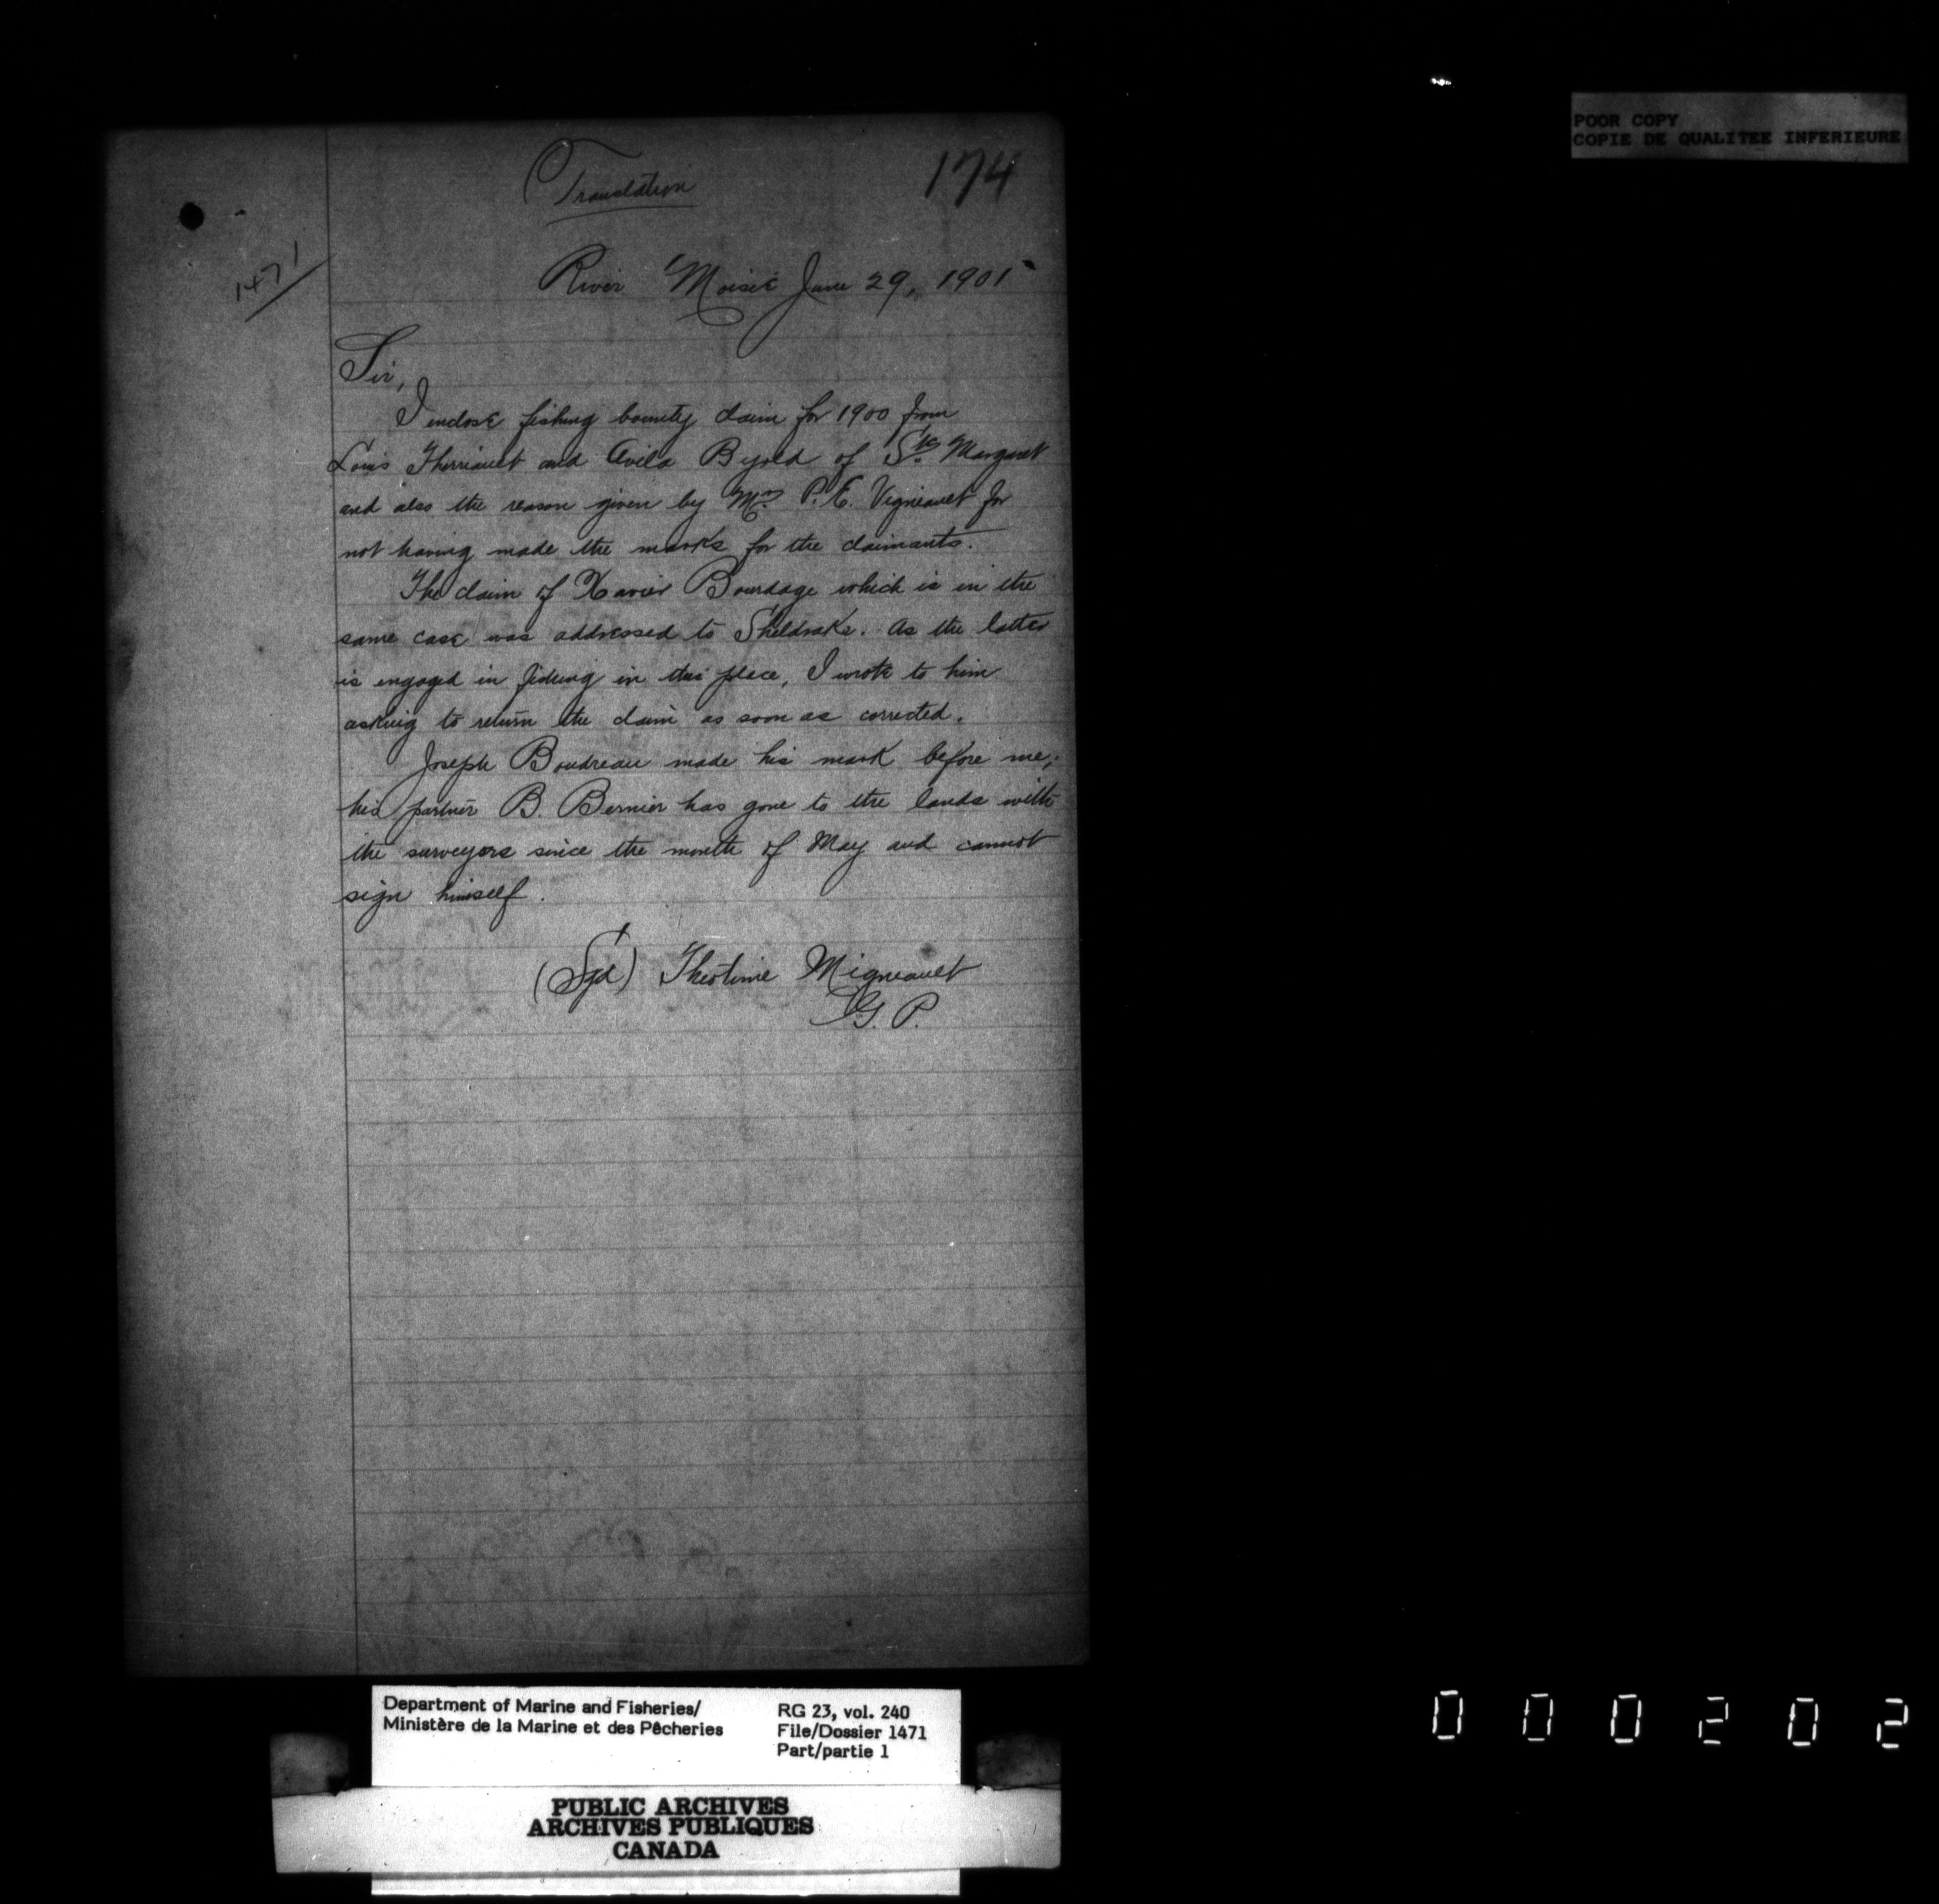 Translation
174
1471
River Moisie June 29, 1901
Sir,
I enclose fishing bounty claim for 1900 from
Louis Therriault and Avila Byold of Ste. Margaret
and also the reason given by Mr. P. E. Vigneault for
not having made the marks for the claimants.
The claim of Xavier Bourdage which is in the
same case was addressed to Sheldrake. As the latter
is engaged in fishing in this place, I wrote to him
asking to return the claim as soon as corrected.
Joseph Boudreau made his mark before me;
his partner B. Bernier has gone to the lands with
the surveyors since the month of May and cannot
sign himself.
(Sgd) Theotime Migneault
G. P.
POOR COPY
COPIE DE QUALITEE INFERIEURE
Department of Marine and Fisheries/
Ministère de la Marine et des Pêcheries
RG 23, vol. 240
File/Dossier 1471
Part/partie 1
PUBLIC ARCHIVES
ARCHIVES PUBLIQUES
CANADA
000202